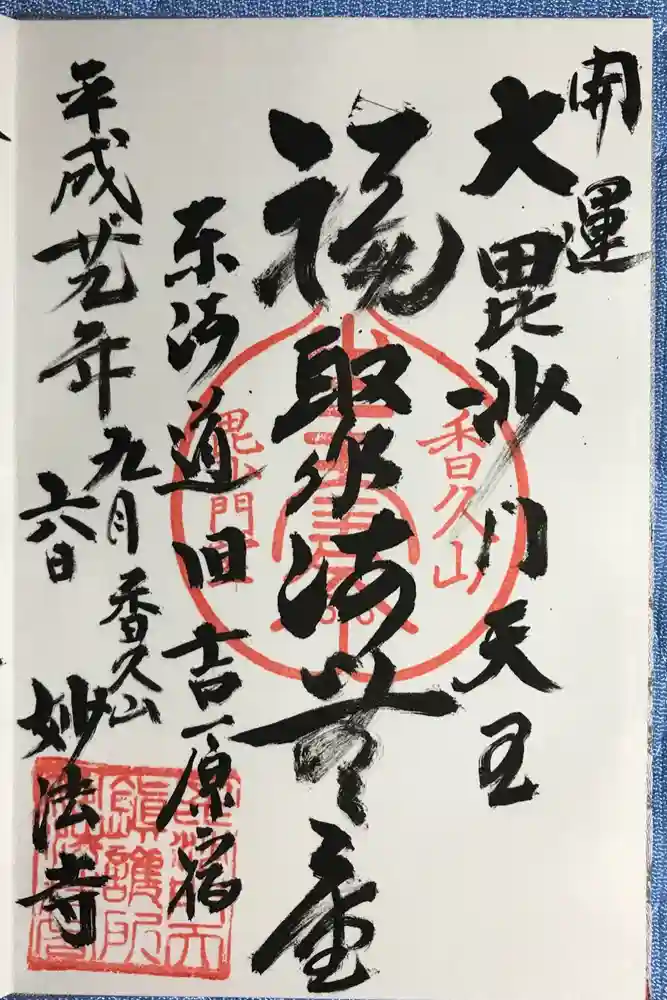 開運
大毘沙門天王
福聚海無量
東海道旧吉原宿
平成廿九年
九月
六日
香久山
妙法寺
香久山
毘沙門堂
鎮護所